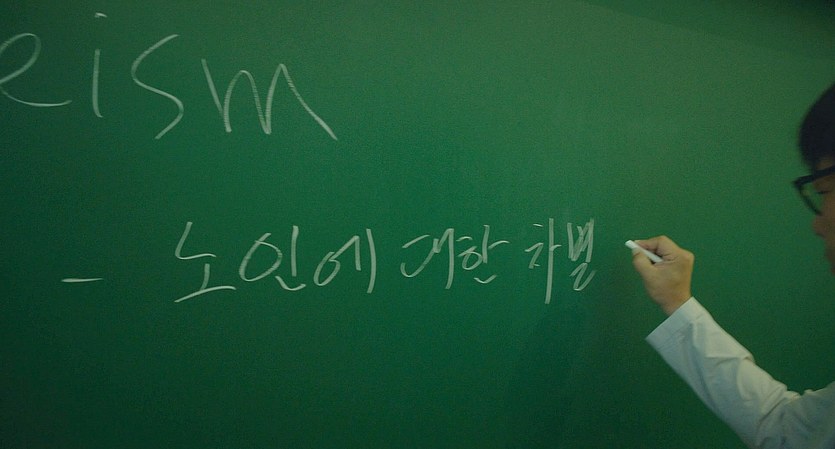 eism
- 노인에 대한 차별